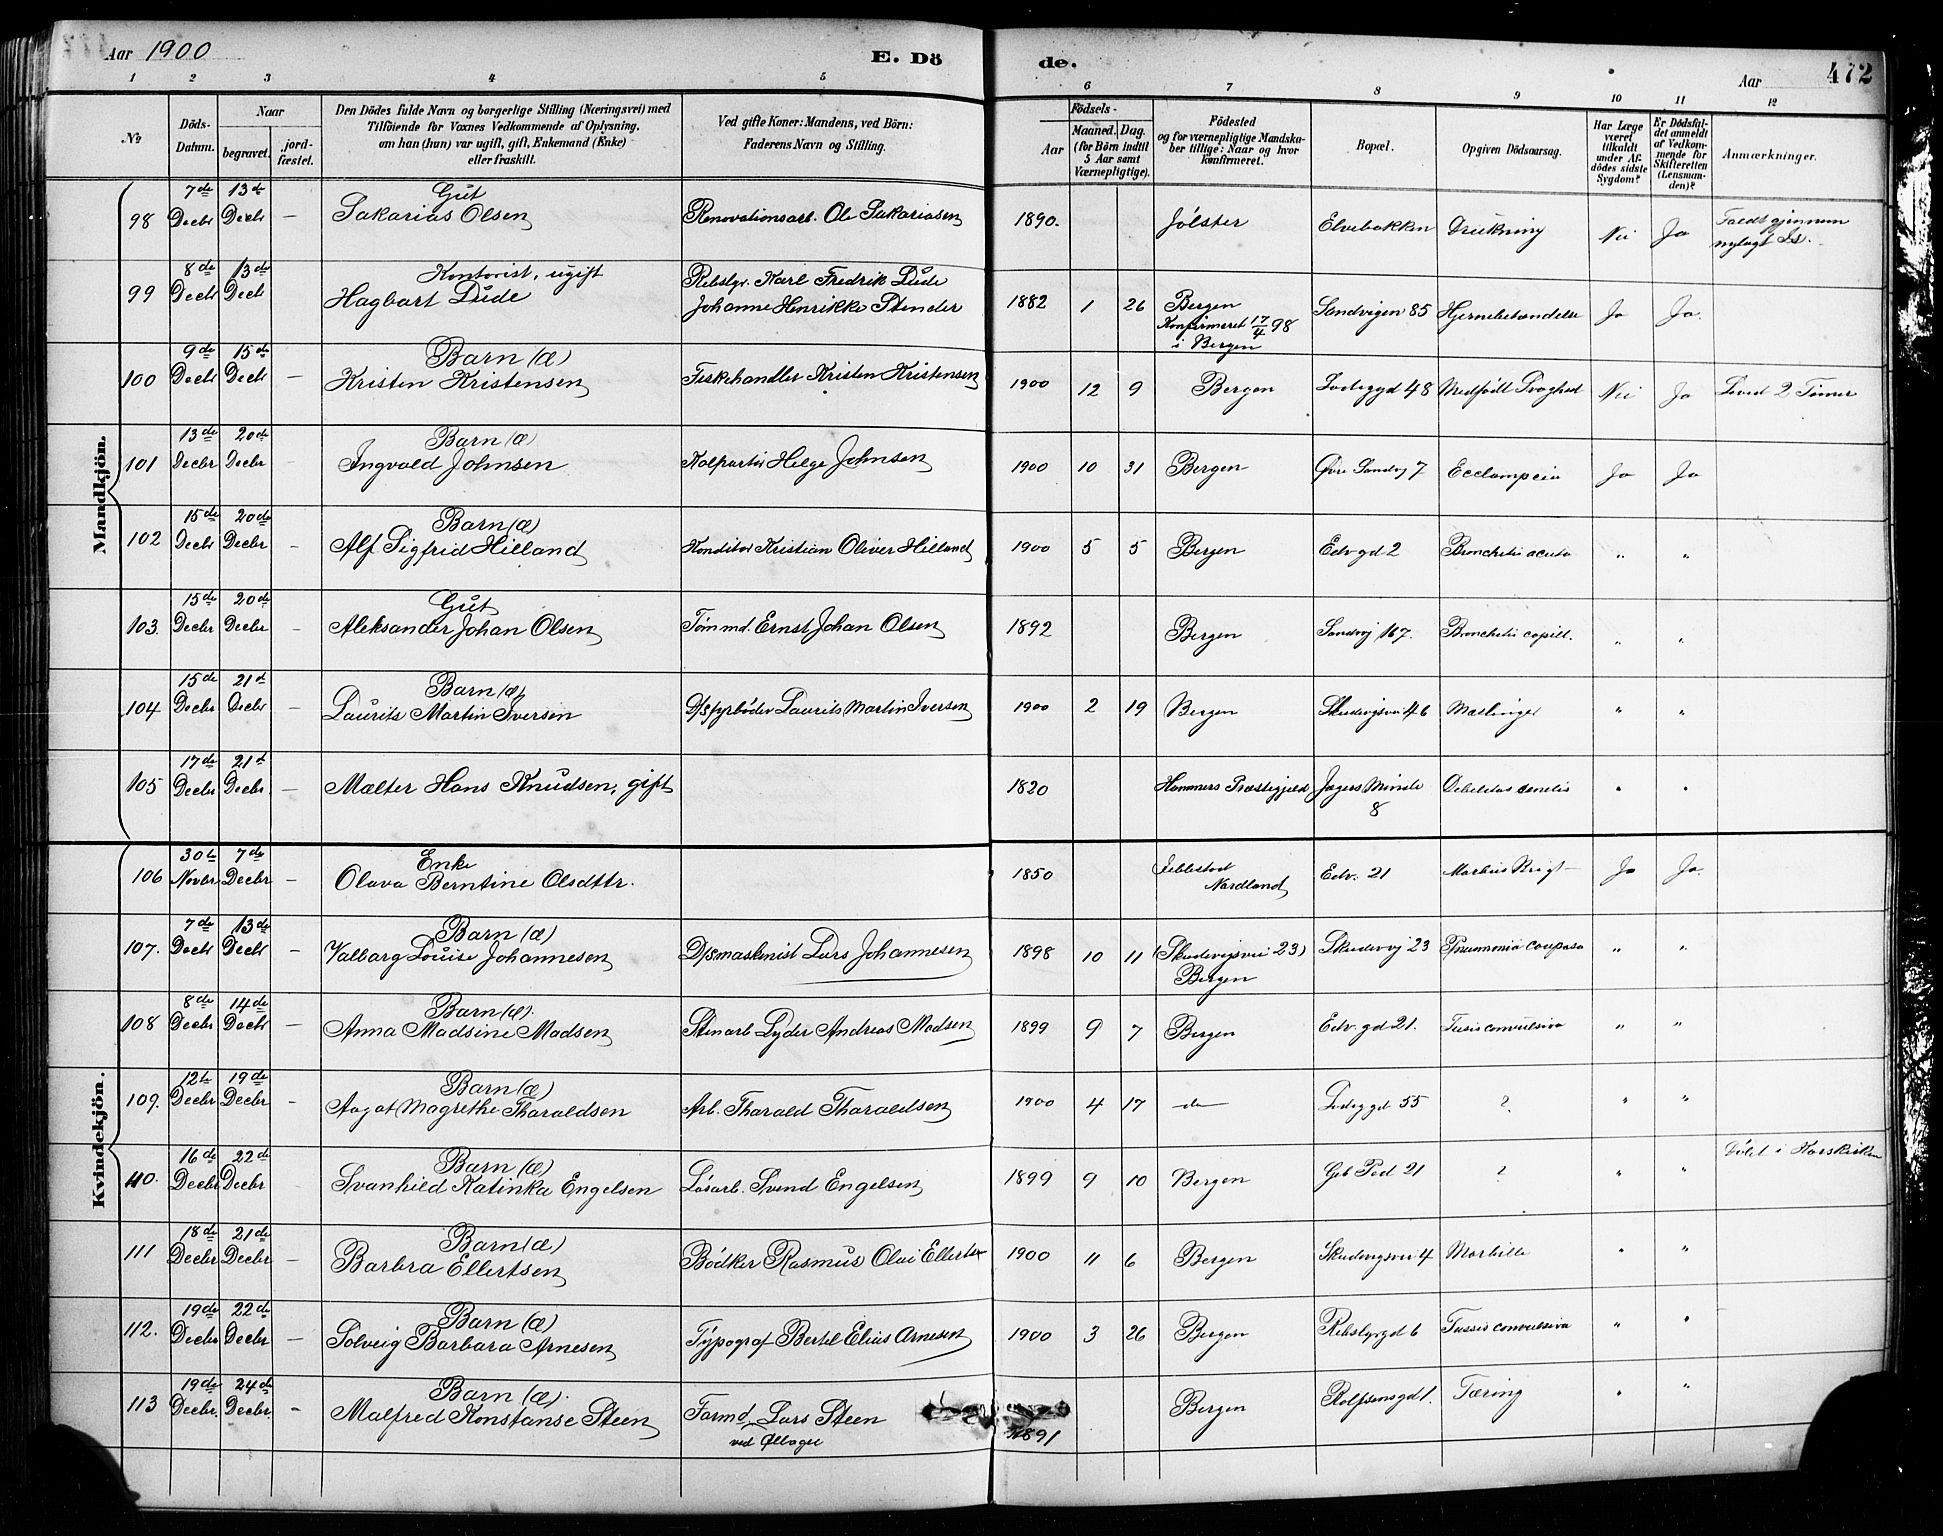 Aar 1900
E. Dö
de.
Aar
472
1 2 3 4 5 6 7 8 9 10 11 12
No
Döds-Datum.
Naar
begravet.
jord-fæstet.
Den Dödes fulde Navn og borgerlige Stilling (Næringsvei) med
Tilföiende for Voxnes Vedkommende af Oplysning,
om han (hun) var ugift, gift, Enkemand (Enke)
eller fraskilt.
Ved gifte Koner: Mandens, ved Börn:
Faderens Navn og Stilling.
Födsels-
Aar
Maaned. Dag.
(for Börn indtil
5 Aar samt
Værnepligtige).
Födested
og for værnepligtige Mandska-
ber tillige: Naar og hvor
konfirmeret.
Bopæl.
Opgiven Dödsaarsag.
Har Læge
været
tilkaldt
under Af-
dödes sidste
Sygdom?
Er Dödsfal-
det anmeldt
af Vedkom-
mende for
Skifteretten
(Lensman-
den)?
Anmærkninger.
Mandkjön.
98 7de Decbr 13de Decbr — Gut
Sakarias Olsen Renovationsarb. Ole Sakariasen 1890. Jølster Elvebakken Drukning Nei Ja Faldt gjennem
nylagt Is.
99 8de Decbr 13de Decbr Kontorist, ugift
Hagbart Dude Rebslgr. Karl Fredrik Dude
Johanne Henrikke Stender 1882 1 26 Bergen
Konfirmeret 17/4 98
i Bergen Sandvigen 85 Hjernebetændelse Ja Ja.
100 9de Decbr 15de Decbr — Barn (æ)
Kristen Kristensen Fiskehandler Kristen Kristensen 1900 12 9 Bergen Ladeggd 48 Medfödt Svaghed Nei Ja Leved 2 Timer
101 13de Decbr 20de Decbr — Barn (æ)
Ingvald Johnsen Kolportör Helge Johnsen 1900 10 31 Bergen Øvre Sandvg 7 Ecclampsia Ja Ja
102 15de Decbr 20de Decbr — Barn (æ)
Alf Sigfrid Hilland Konditor Kristian Oliver Hilland 1900 5 5 Bergen Edv gd 2 Bronchitis acuta " "
103. 15de Decbr 20de Decbr — Gut
Aleksander Johan Olsen Tömmd. Ernst Johan Olsen 1892 Bergen Sandvg 167. Bronchitis capill. " "
104 15de Decbr 21d Decbr — Barn (æ)
Laurits Martin Iversen D/S fyrbøder Laurits Martin Iversen 1900 2 19 Bergen Skudevigsvei 46 Mæslinger " "
105 17de Decbr 21d Decbr — Mælter Hans Knudsen, gift 1820 Hammers Præstegjeld Jægers Minde
8 Debilitas senilis " "
Kvindekjön.
106 30te Novbr 7de Decbr — Enke
Olava Berntine Olsdttr. 1850 Nordland Edv. 21 Morbus Brigt— Ja Ja.
107. 7de Decbr 13de Decbr — Barn (æ)
Valborg Louise Johannesen D/Smaskinist Lars Johannesen 1898 10 11 (Skudevigsvei 23)
Bergen Skudevvj 23 Pneumonia crouposa " "
108 8de Decbr 14de Decbr — Barn (æ).
Anna Madsine Madsen Stenarb Lyder Andreas Madsen 1899 9 7 Bergen Edv. gd 21. Tussis convulsiva " "
109. 12te Decbr 19de Decbr — Barn (æ)
Aagot Magrethe Tharaldsen Arb. Tharald Tharaldsen 1900 4 17 — do — Ladeggd 55 ? " "
110. 16de Decbr 22de Decbr — Barn (æ)
Svanhild Katinka Engelsen Løsarb. Svend Engelsen 1899 9 10 Bergen Geb Ped 21 ? " " Døbt i Korskirken
111 18de Decbr 21de Decbr — Barn (æ)
Barbra Ellertsen Bödker Rasmus Olai Ellertsen 1900 11 6 Bergen Skudevigsvei 4 Morbille " "
112. 19de Decbr 22de Decbr — Barn (æ)
Solveig Barbara Arnesen Typograf Bertel Elias Arnesen 1900 3 26 Bergen Rebslgrgd 6 Tussis convulsiva " "
113 19de Decbr. 24de Decbr. — Barn (æ).
Malfred Konstanse Steen Formd Lars Steen
ved Øllager 1891 Bergen Rolfsensgd 1. Tæring " "